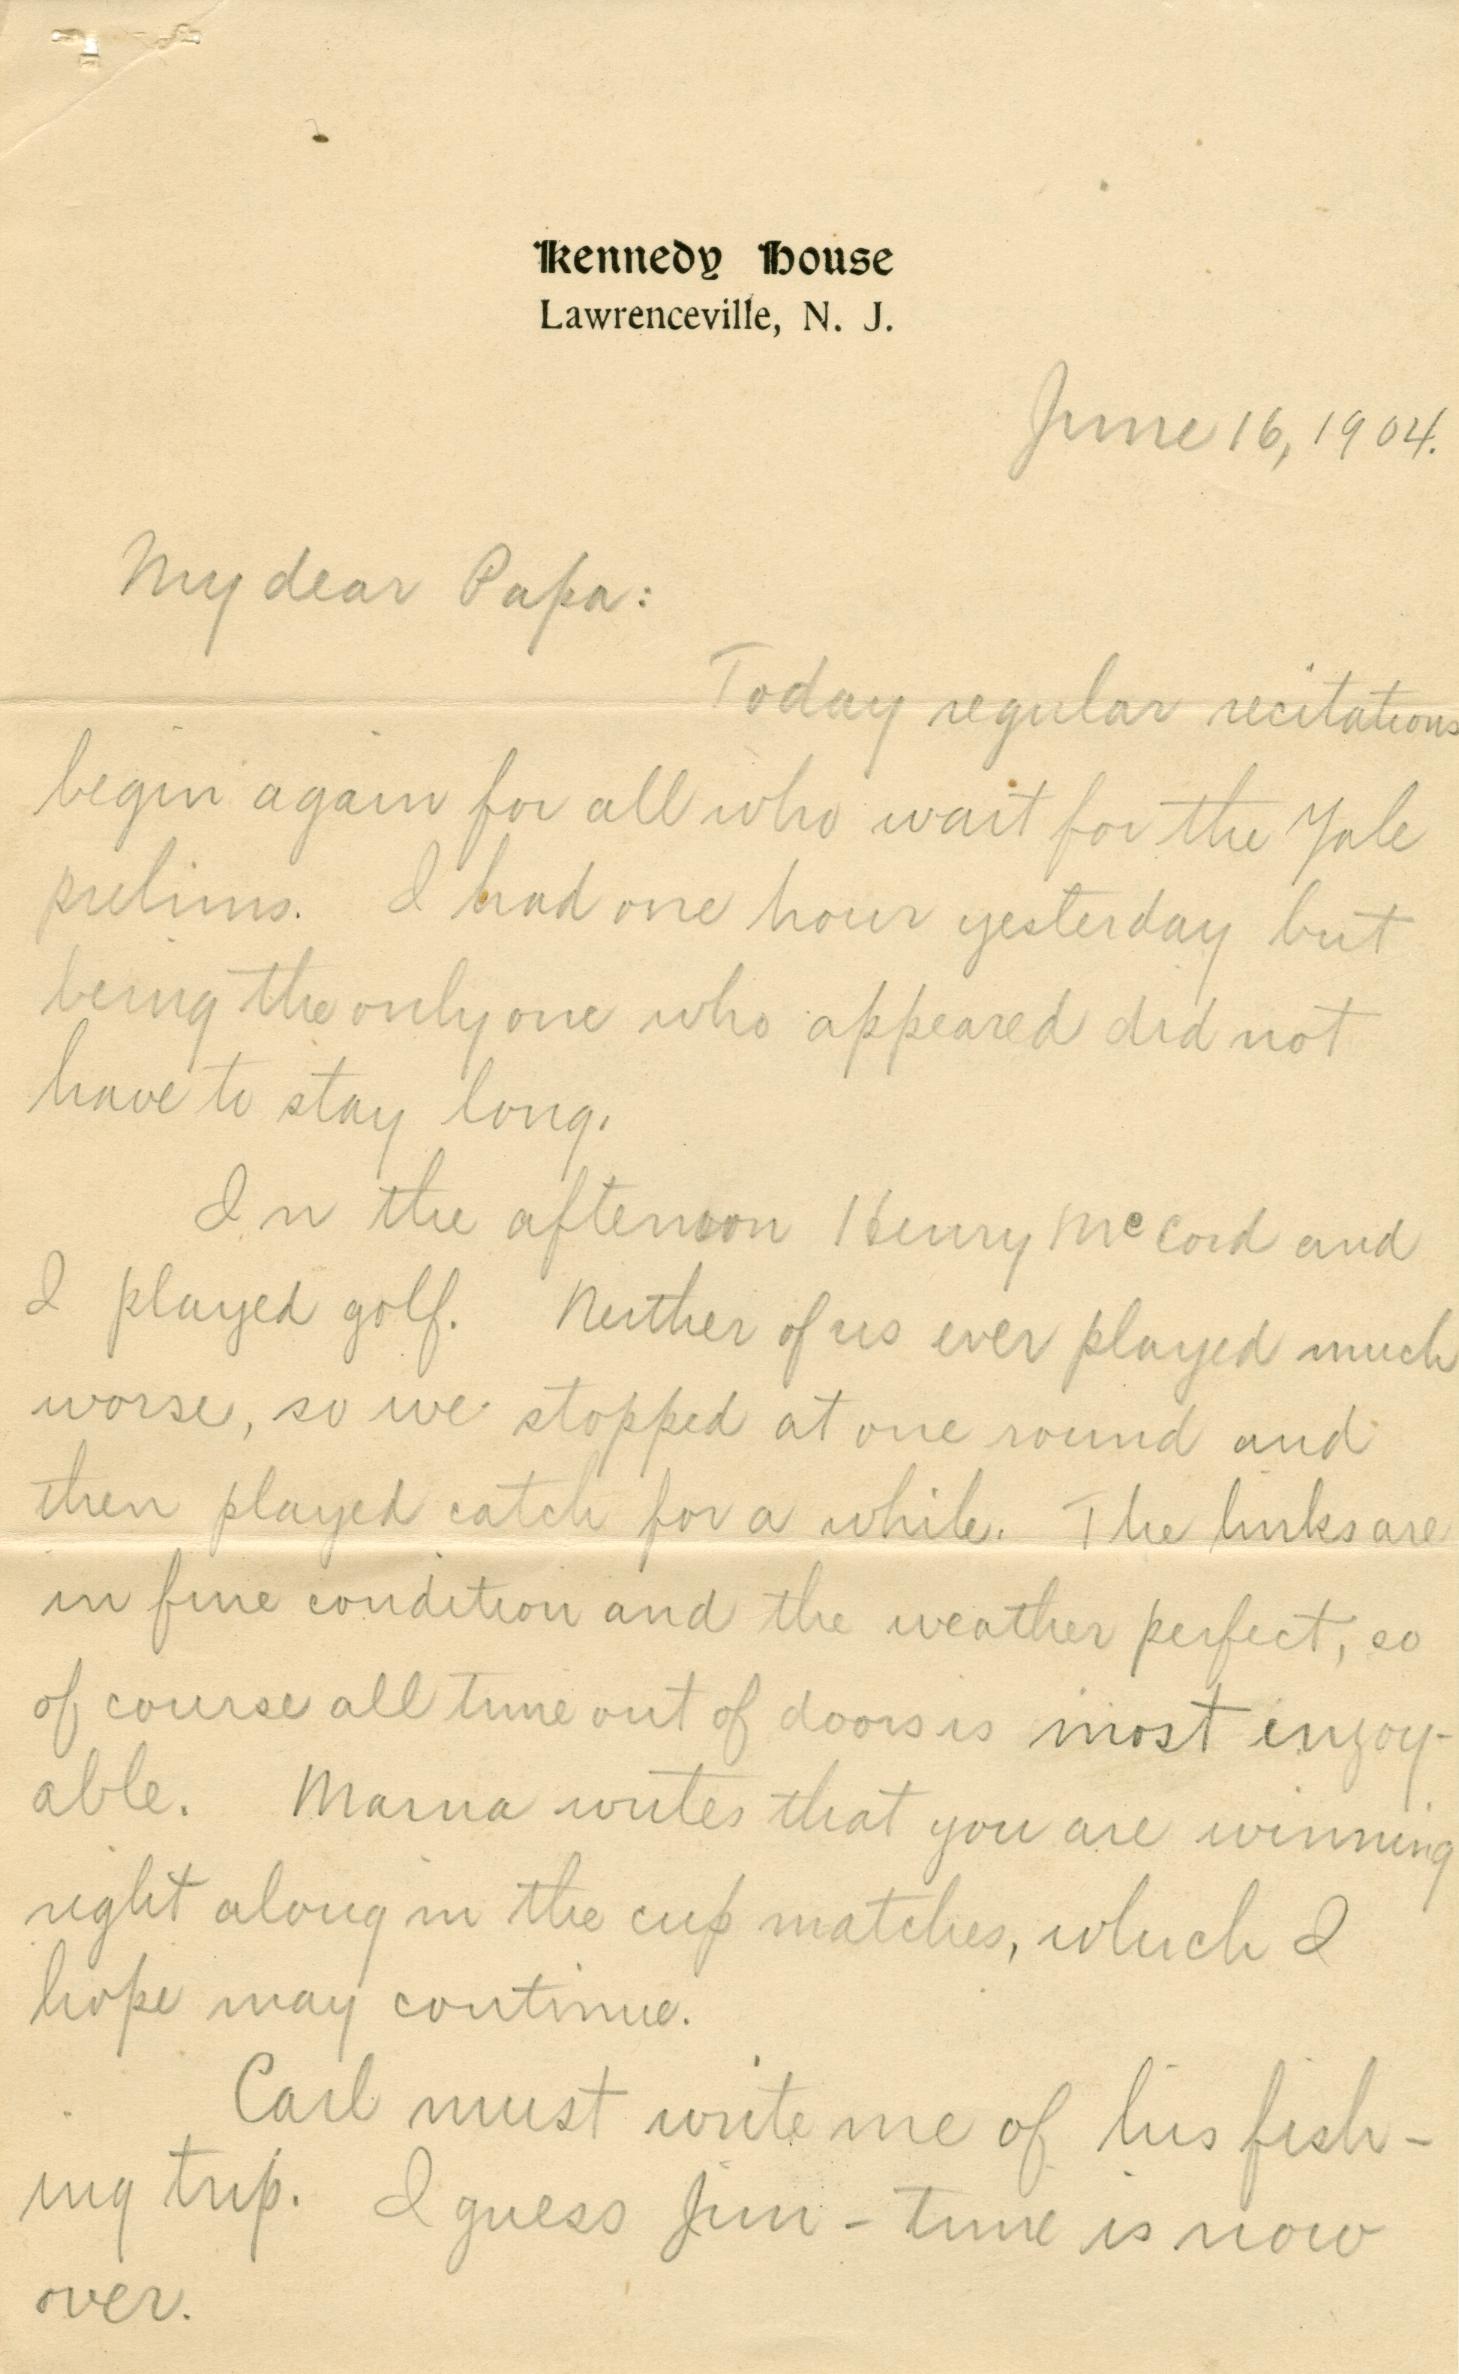 Kennedy House
Lawrenceville, N. J.
June 16, 1904.
My dear Papa:
Today regular recitations
begin again for all who wait for the Yale
prelims. I had one hour yesterday but
being the only one who appeared did not
have to stay long.
In the afternoon Henry McCord and
I played golf. Neither of us ever played much
worse, so we stopped at one round and
then played catch for a while. The links are
in fine condition and the weather perfect, so
of course all time out of doors is most enjoy-
able. Mama writes that you are winning
right along in the cup matches, which I
hope may continue.
Carl must write me of his fish-
ing trip. I guess Jim-time is now
over.